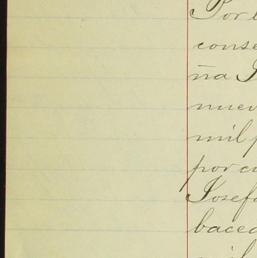 Por
conse
ña J
nuev
mil p
por cu
Josefa
baced